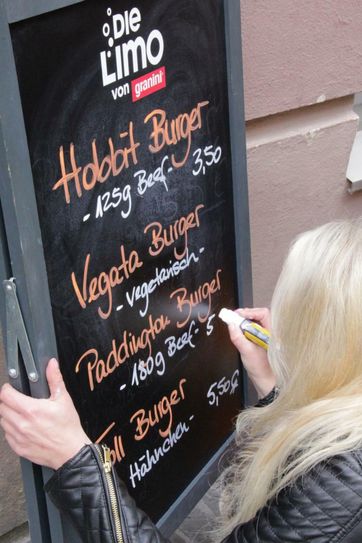 Die
Limo
von granini
Hobbit Burger
- 125g Beef - 3,50
Vegata Burger
- vegetarisch -
Paddington Burger
- 180g Beef - 5
Toll Burger
Hähnchen - 5,50,€